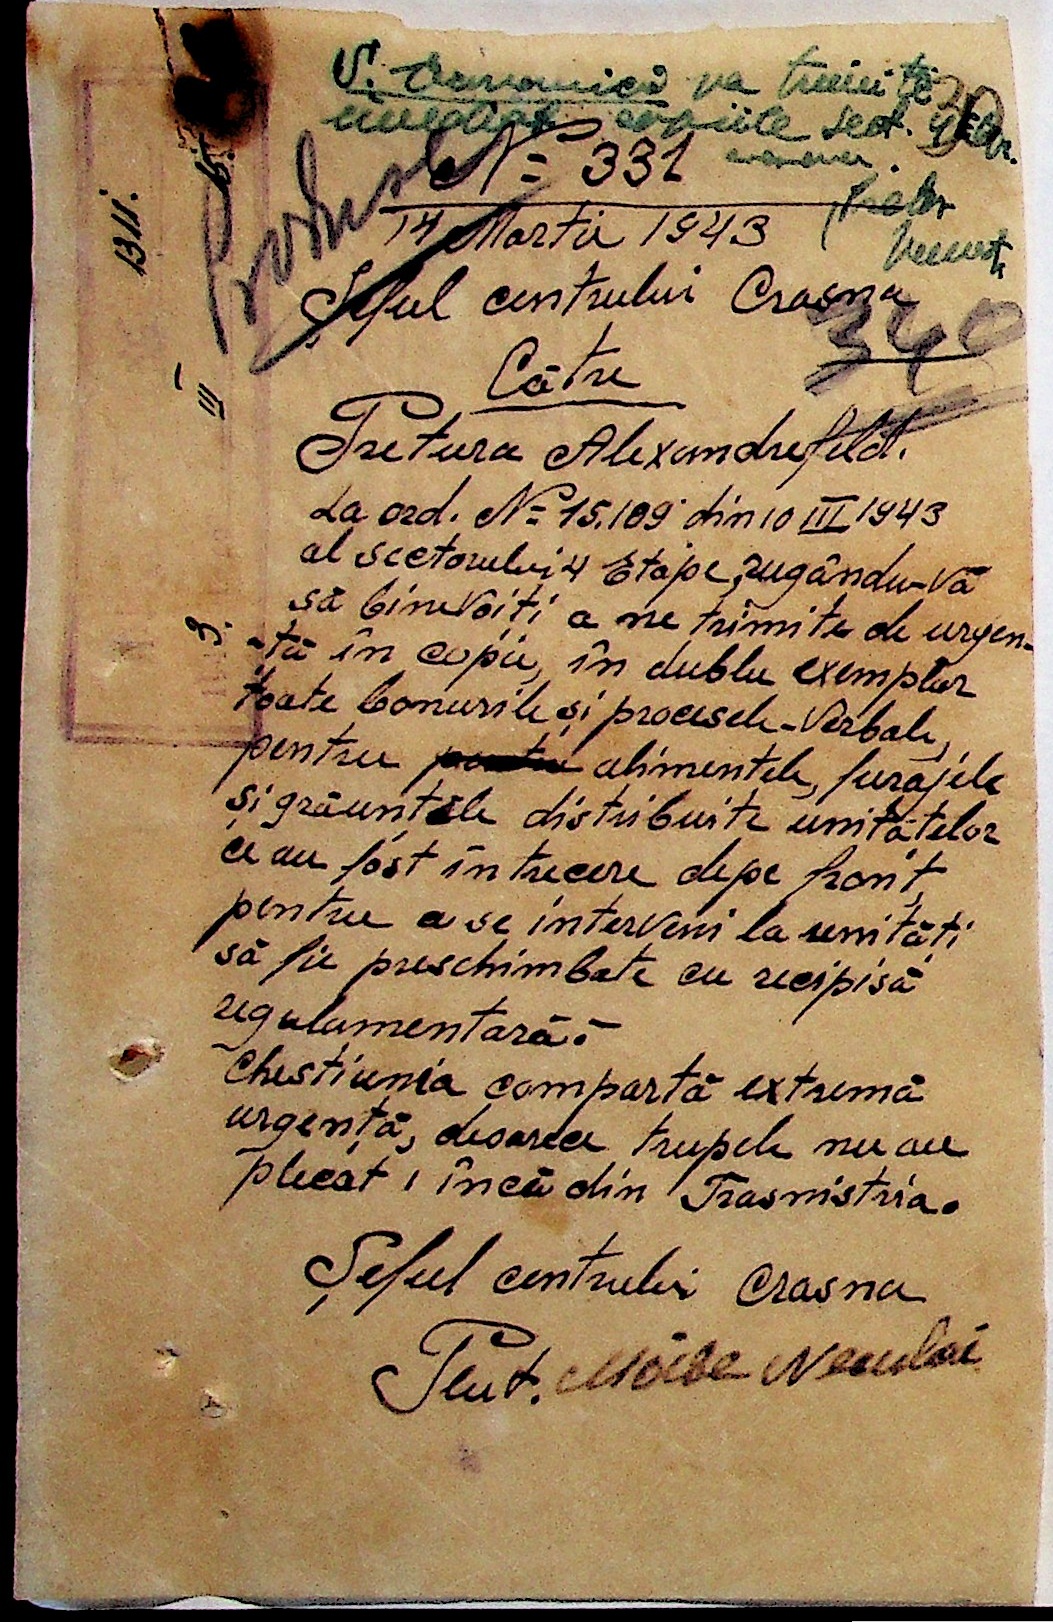 S. Economică va trimite
imediat copiile sect.
No 331
14 Martie 1943
Șeful centrului Crasna
340
Către
Pretura Alexandrefeld.
La ord. No 15.109 din 10 III 1943
al sectorului 4 Etape, rugându-Vă
să binevoiți a ne trimite de urgen-
-ță în copie, în dublu exemplar
toate bonurile și procesele-Verbale,
pentru alimentele, furajele
și grăuntele distribuite unităților
ce au fost în trecere depe front,
pentru a se interveni la unități
să fie preschimbate cu recipisă
regulamentară.-
Chestiunia compartă extremă
urgență, deoarece trupele nu au
plecat, încă din Trasnistria.
Șeful centrului Crasna
Plut. Moise Neculai
1311.
15.
III
3.